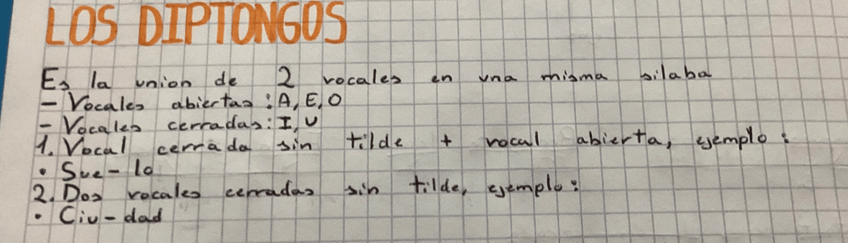 LOS DIPTONGOS
Es la union de 2 vocales en una misma silaba
- Vocales abiertas: A, E, O
- Vocales cerradas: I, U
1. Vocal cerrada sin tilde + vocal abierta, ejemplo:
• Sue-lo
2. Dos vocales cerradas sin tilde, ejemplo:
• Ciu-dad